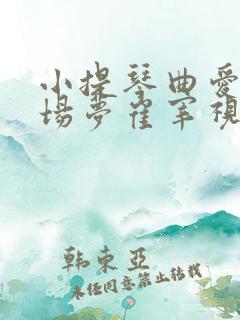 小提琴曲爱
场梦崔军视
韩东亚
未经同意禁止转载